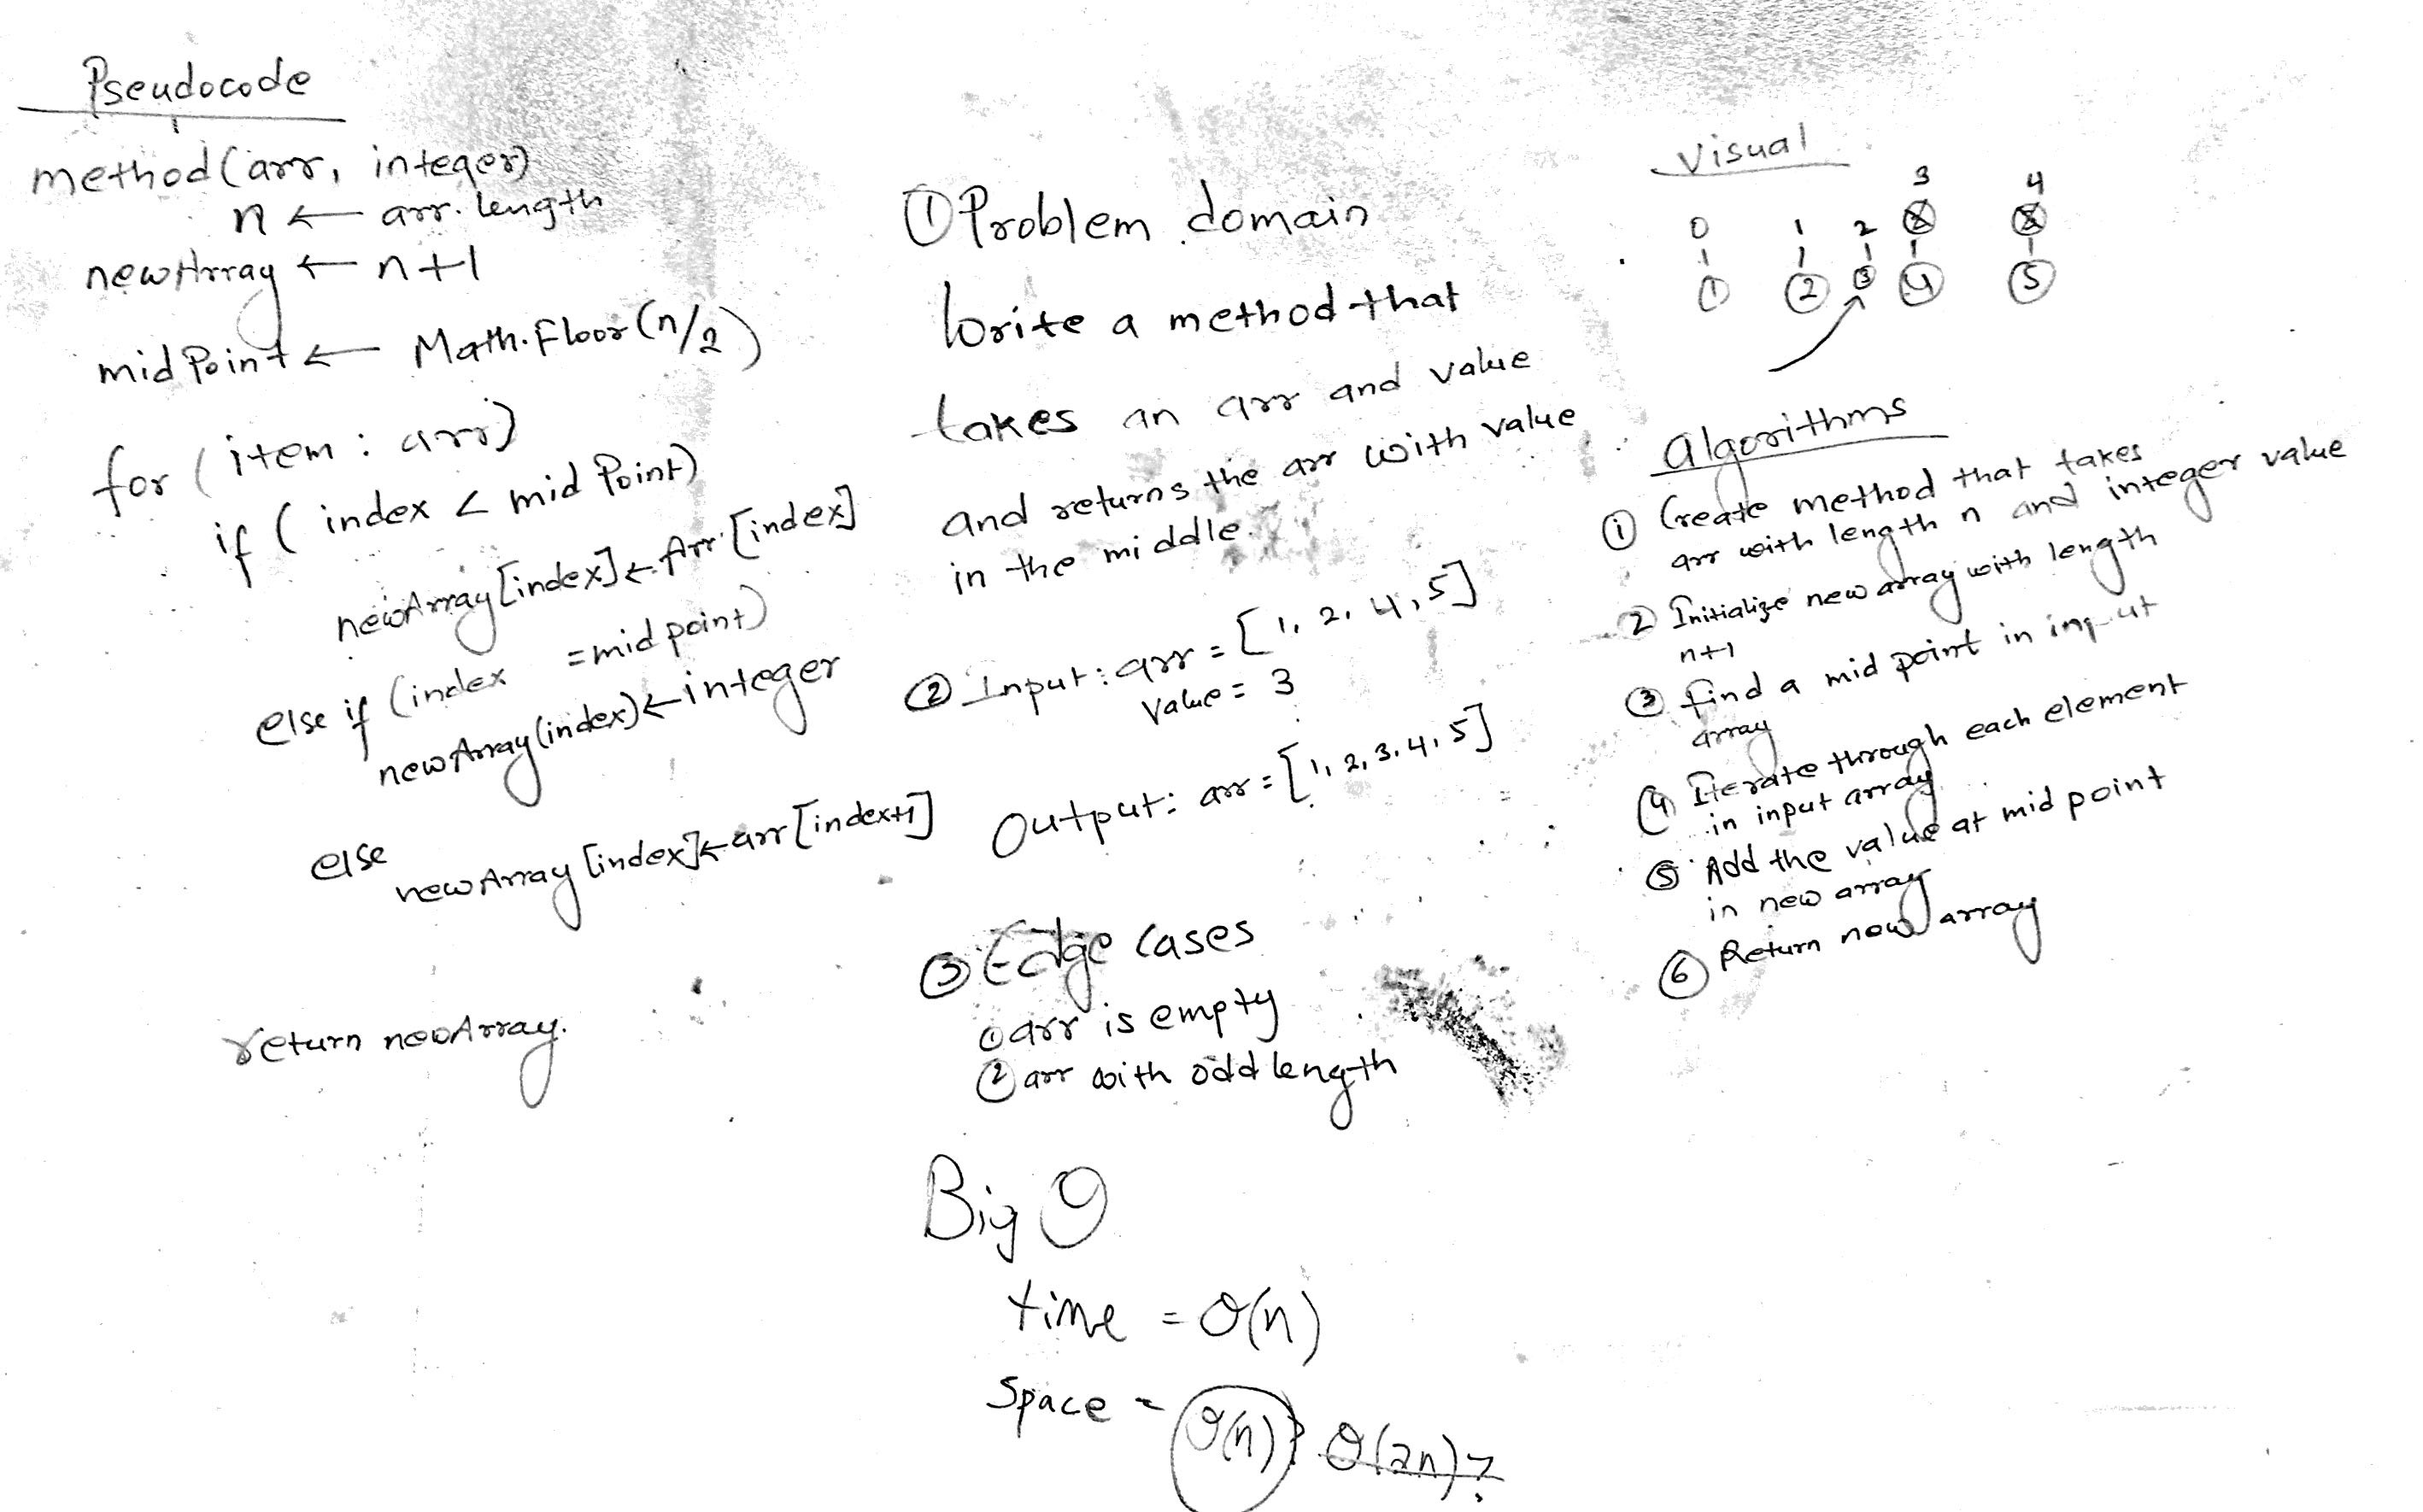 Pseudocode
method(arr, integer)
n ← arr.length
newArray ← n+1
midPoint ← Math.Floor(n/2)
for (item : arr)
if ( index < midPoint)
newArray[index] ← Arr[index]
else if (index =midpoint)
newArray(index) ← integer
else
newArray[index] ← arr[index+1]
return newArray.
① Problem domain
Write a method that
takes an arr and value
and returns the arr with value
in the middle.
② Input: arr = [1, 2, 4, 5]
Value = 3
Output: arr = [1, 2, 3, 4, 5]
③ Edge Cases
① arr is empty
② arr with odd length
Big O
time = O(n)
Space = O(n)? O(2n)?
Visual
3 4
0 1 2
1 2 3 4 5
Algorithms
① Create method that takes
arr with length n and integer value
2 Initialize new array with length
n+1
③ find a mid point in input
array
④ Iterate through each element
in input array
⑤ Add the value at mid point
in new array
⑥ Return new array